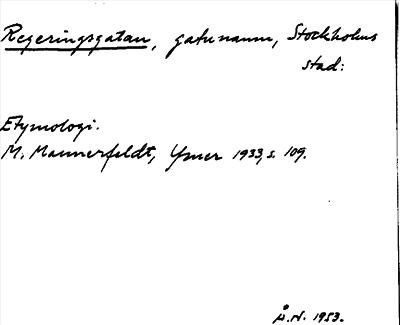 Regeringsgatan, gatunamn, Stockholms
stad:
Etymologi.
M. Mannerfeldt, Ymer 1933, s. 109.
Å.N. 1953.